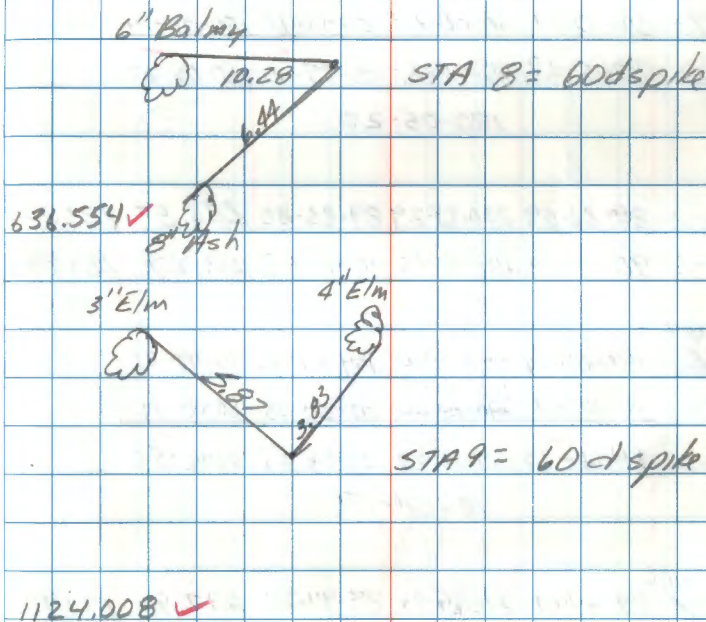 6" Balmy
10.28
STA 8 = 60d spike
6.44
636.554 ✓
8" Ash
3" Elm
4" Elm
5.87
3.83
STA 9 = 60d spike
1124.008 ✓